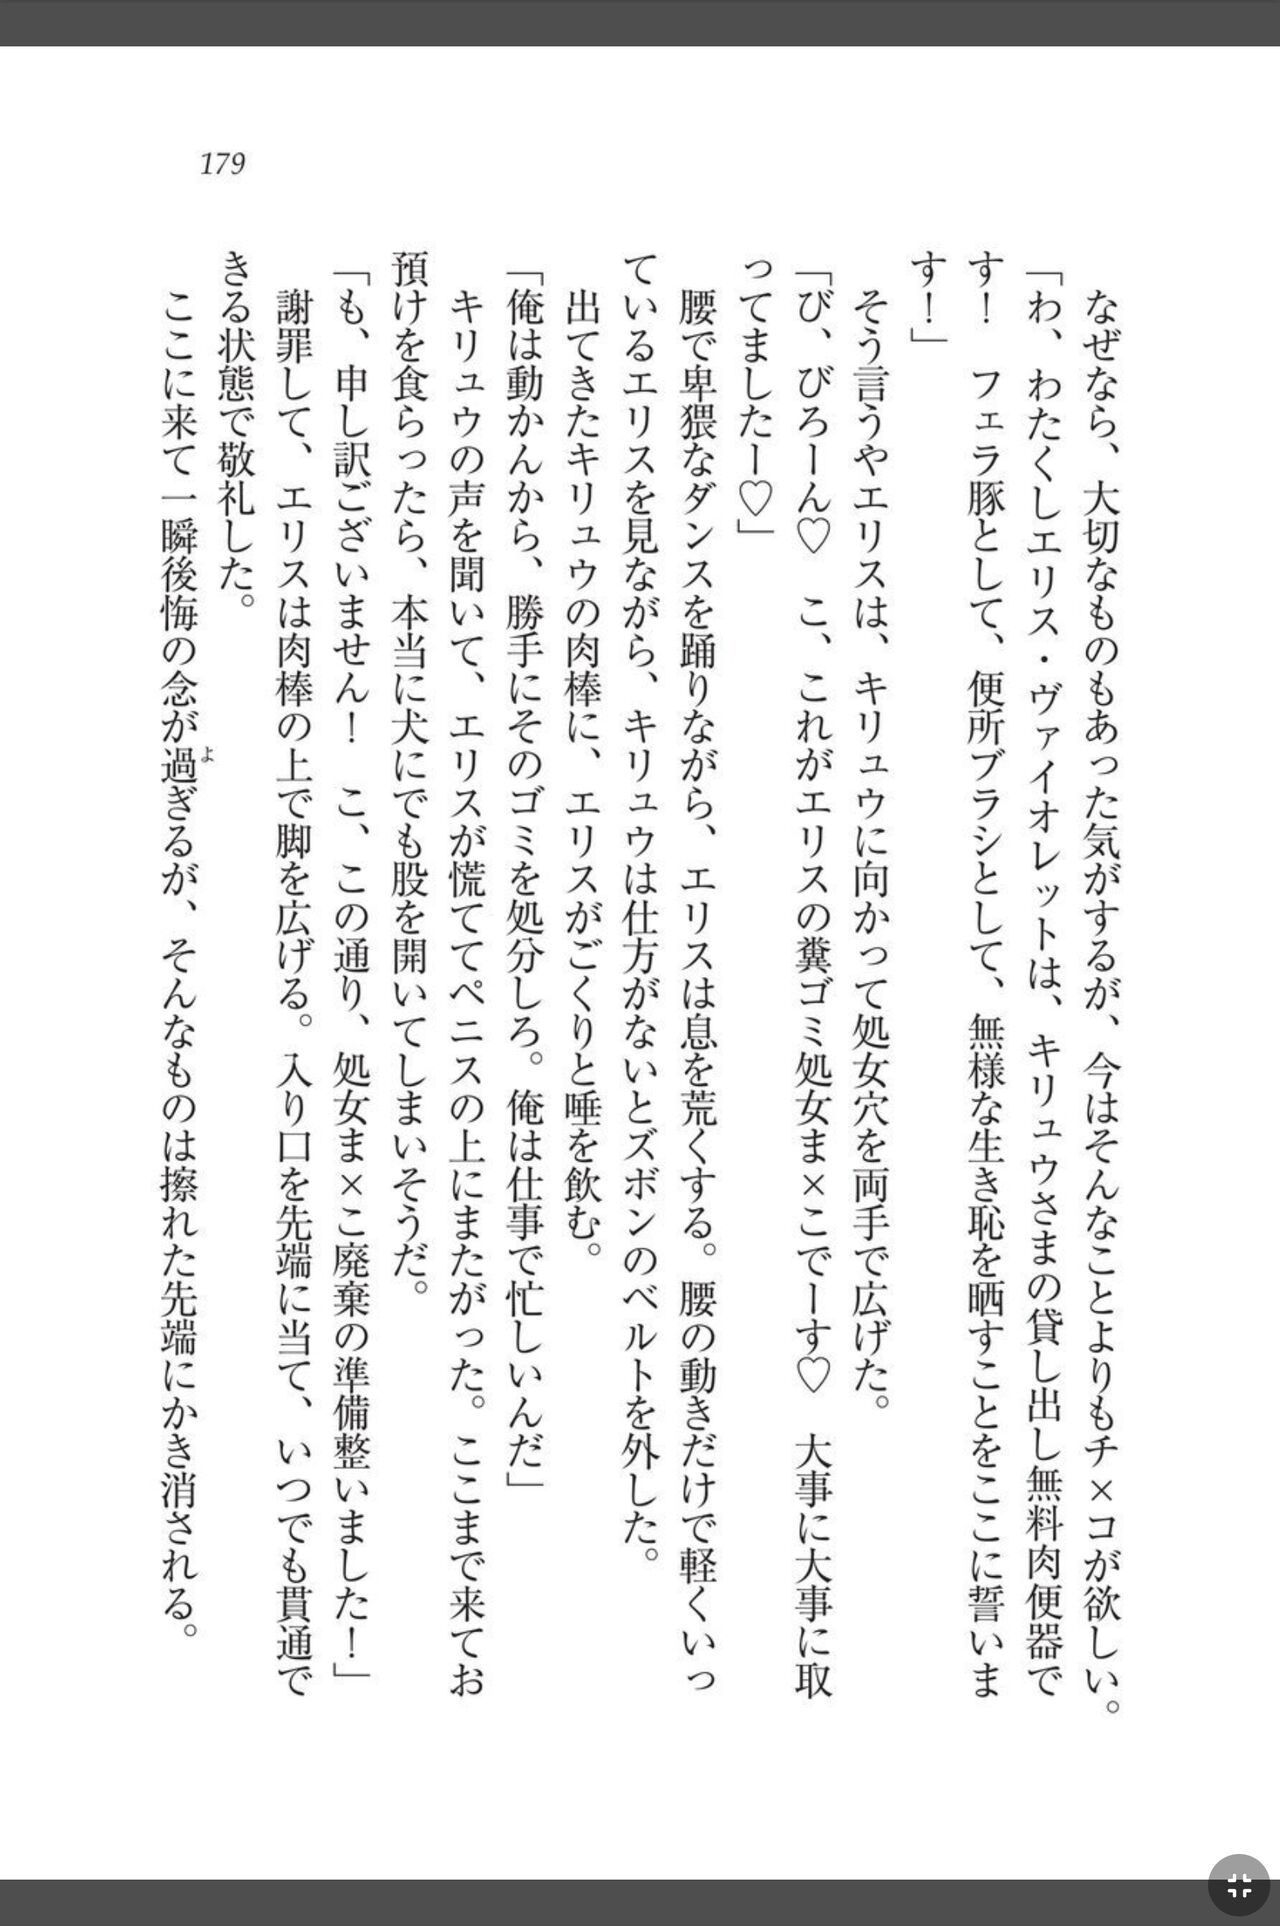 179
なぜなら、大切なものもあった気がするが、今はそんなことよりもチ×コが欲しい。
「わ、わたくしエリス・ヴァイオレットは、キリュウさまの貸し出し無料肉便器で
す！　フェラ豚として、便所ブラシとして、無様な生き恥を晒すことをここに誓いま
す！」
そう言うやエリスは、キリュウに向かって処女穴を両手で広げた。
「び、びろーん♡　こ、これがエリスの糞ゴミ処女ま×こでーす♡　大事に大事に取
ってましたー♡」
腰で卑猥なダンスを踊りながら、エリスは息を荒くする。腰の動きだけで軽くいっ
ているエリスを見ながら、キリュウは仕方がないとズボンのベルトを外した。
出てきたキリュウの肉棒に、エリスがごくりと唾を飲む。
「俺は動かんから、勝手にそのゴミを処分しろ。俺は仕事で忙しいんだ」
キリュウの声を聞いて、エリスが慌ててペニスの上にまたがった。ここまで来てお
預けを食らったら、本当に犬にでも股を開いてしまいそうだ。
「も、申し訳ございません！　こ、この通り、処女ま×こ廃棄の準備整いました！」
謝罪して、エリスは肉棒の上で脚を広げる。入り口を先端に当て、いつでも貫通で
きる状態で敬礼した。
ここに来て一瞬後悔の念が過よぎるが、そんなものは擦れた先端にかき消される。